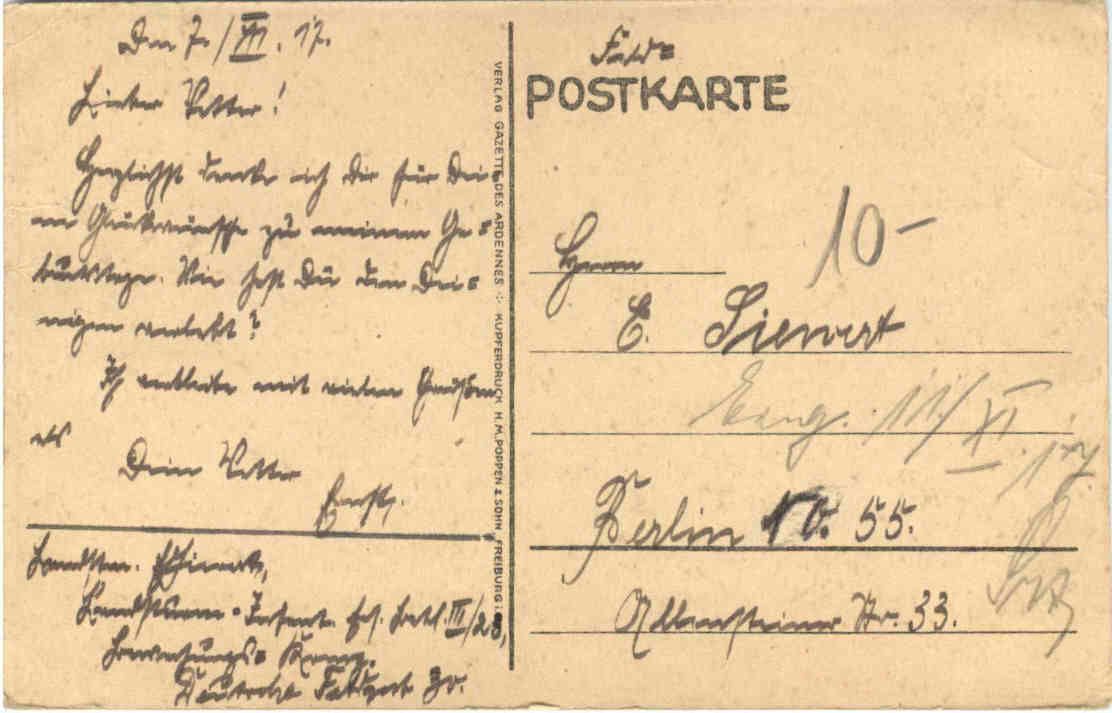 Den 7./XI. 17.
Lieber Vetter!
Herzlichst danke ich Dir für Dei=
ne Glückwünsche zu meinem Ge=
burtstage. Wie hast Du den Dei=
nigen verlebt?
Ich verbleibe mit vielen Grüßen
als
Dein Vetter
Ernst.
Landstm.
Landsturm=Infant. Ers. Batl. III/28,
Deutsche Feldpost
VERLAG GAZETTE DES ARDENNES :: KUPFERDRUCK H.M. POPPEN & SOHN, FREIBURG i.B.
Feld=
POSTKARTE
10-
Herrn
E. Siewert
Eing. 11/XI. 17
Berlin NO. 55.
Allensteiner Str. 33.